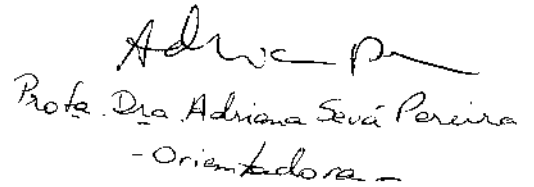 Adriana P
Profa. Dra Adriana Sevá Pereira
- Orientadora -